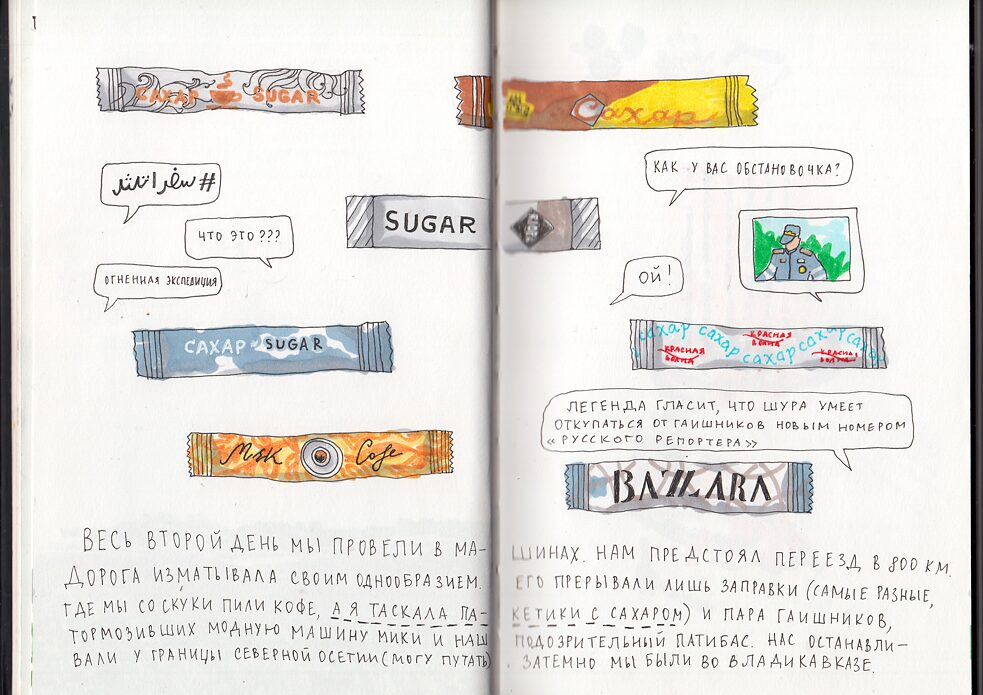 САХАР SUGAR
Сахар
КАК У ВАС ОБСТАНОВОЧКА?
ЧТО ЭТО???
SUGAR
ОЙ!
ОГНЕННАЯ ЭКСПЕДИЦИЯ
САХАР SUGAR
сахар сахар сахар сахар сахар
КРАСНАЯ ПОЛЯНА
КРАСНАЯ ПОЛЯНА
КРАСНАЯ ПОЛЯНА
ЛЕГЕНДА ГЛАСИТ, ЧТО ШУРА УМЕЕТ
ОТКУПАТЬСЯ ОТ ГАИШНИКОВ НОВЫМ НОМЕРОМ
«РУССКОГО РЕПОРТЕРА»
Msk Cofe
BAZZARA
ВЕСЬ ВТОРОЙ ДЕНЬ МЫ ПРОВЕЛИ В МА-ШИНАХ. НАМ ПРЕДСТОЯЛ ПЕРЕЕЗД В 800 КМ.
ДОРОГА ИЗМАТЫВАЛА СВОИМ ОДНООБРАЗИЕМ. ЕГО ПРЕРЫВАЛИ ЛИШЬ ЗАПРАВКИ (САМЫЕ РАЗНЫЕ,
ГДЕ МЫ СО СКУКИ ПИЛИ КОФЕ, А Я ТАСКАЛА ПА-КЕТИКИ С САХАРОМ) И ПАРА ГАИШНИКОВ,
ТОРМОЗИВШИХ МОДНУЮ МАШИНУ МИКИ И НАШ ПОДОЗРИТЕЛЬНЫЙ ПАТИБАС. НАС ОСТАНАВЛИ-
ВАЛИ У ГРАНИЦЫ СЕВЕРНОЙ ОСЕТИИ (МОГУ ПУТАТЬ). ЗАТЕМНО МЫ БЫЛИ ВО ВЛАДИКАВКАЗЕ.